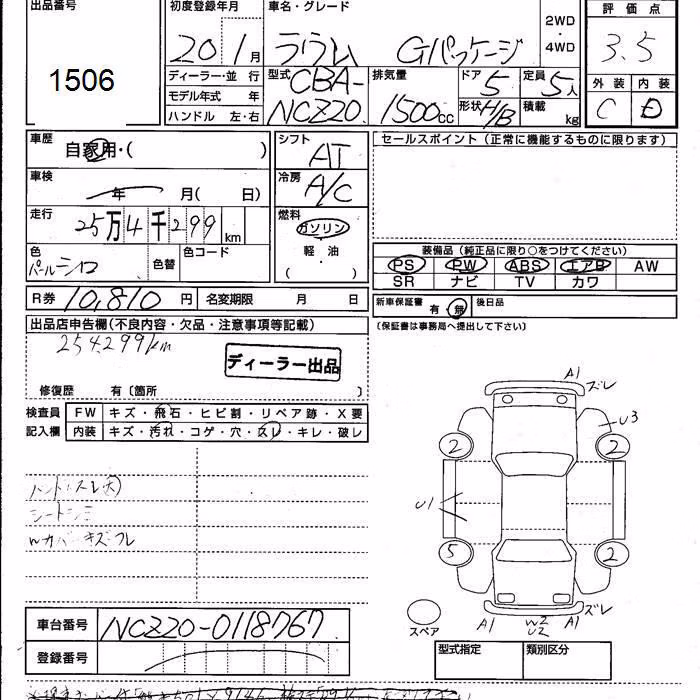 出品番号 初度登録年月 車名・グレード 2WD・4WD 評価点
1506 20 1月 ラウム Gパッケージ 3.5
ディーラー・並行 型式 CBA-NCZ20 排気量 1500cc ドア 5 定員 5人 外装 内装
モデル年式 年 形状 H/B 積載 kg C D
ハンドル 左・右
車歴 自家用・( ) シフト AT セールスポイント(正常に機能するものに限ります)
車検 年 月( 日) 冷房 A/C
走行 25万4千299km 燃料 ガソリン
軽・油
( ・ )
色 パールシロ 色替 色コード
装備品(純正品に限り○をつけてください)
PS PW ABS エアB AW
SR ナビ TV カワ
R券 10,810円 名変期限 月 日 新車保証書 有・無 後日品
(保証書は事務局へ提出して下さい)
出品店申告欄(不良内容・欠品・注意事項等記載)
254299km
ディーラー出品
修復歴 有〔箇所 〕
検査員 FW キズ・飛石・ヒビ割・リペア跡・X要
記入欄 内装 キズ・汚れ・コゲ・穴・スレ・キレ・破レ
A1 ズレ
U3
2 2
U1
5 2
スペア A1 W2 U2 A1 ズレ
シートシミ
車台番号 NCZ20-0118767
登録番号
型式指定 類別区分